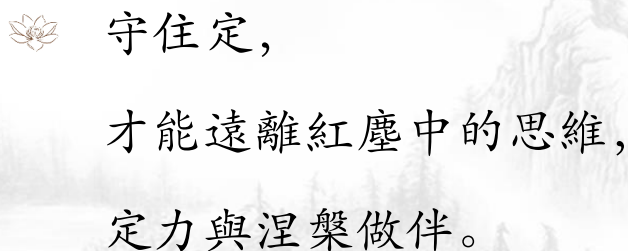 守住定，
才能遠離紅塵中的思維，
定力與涅槃做伴。